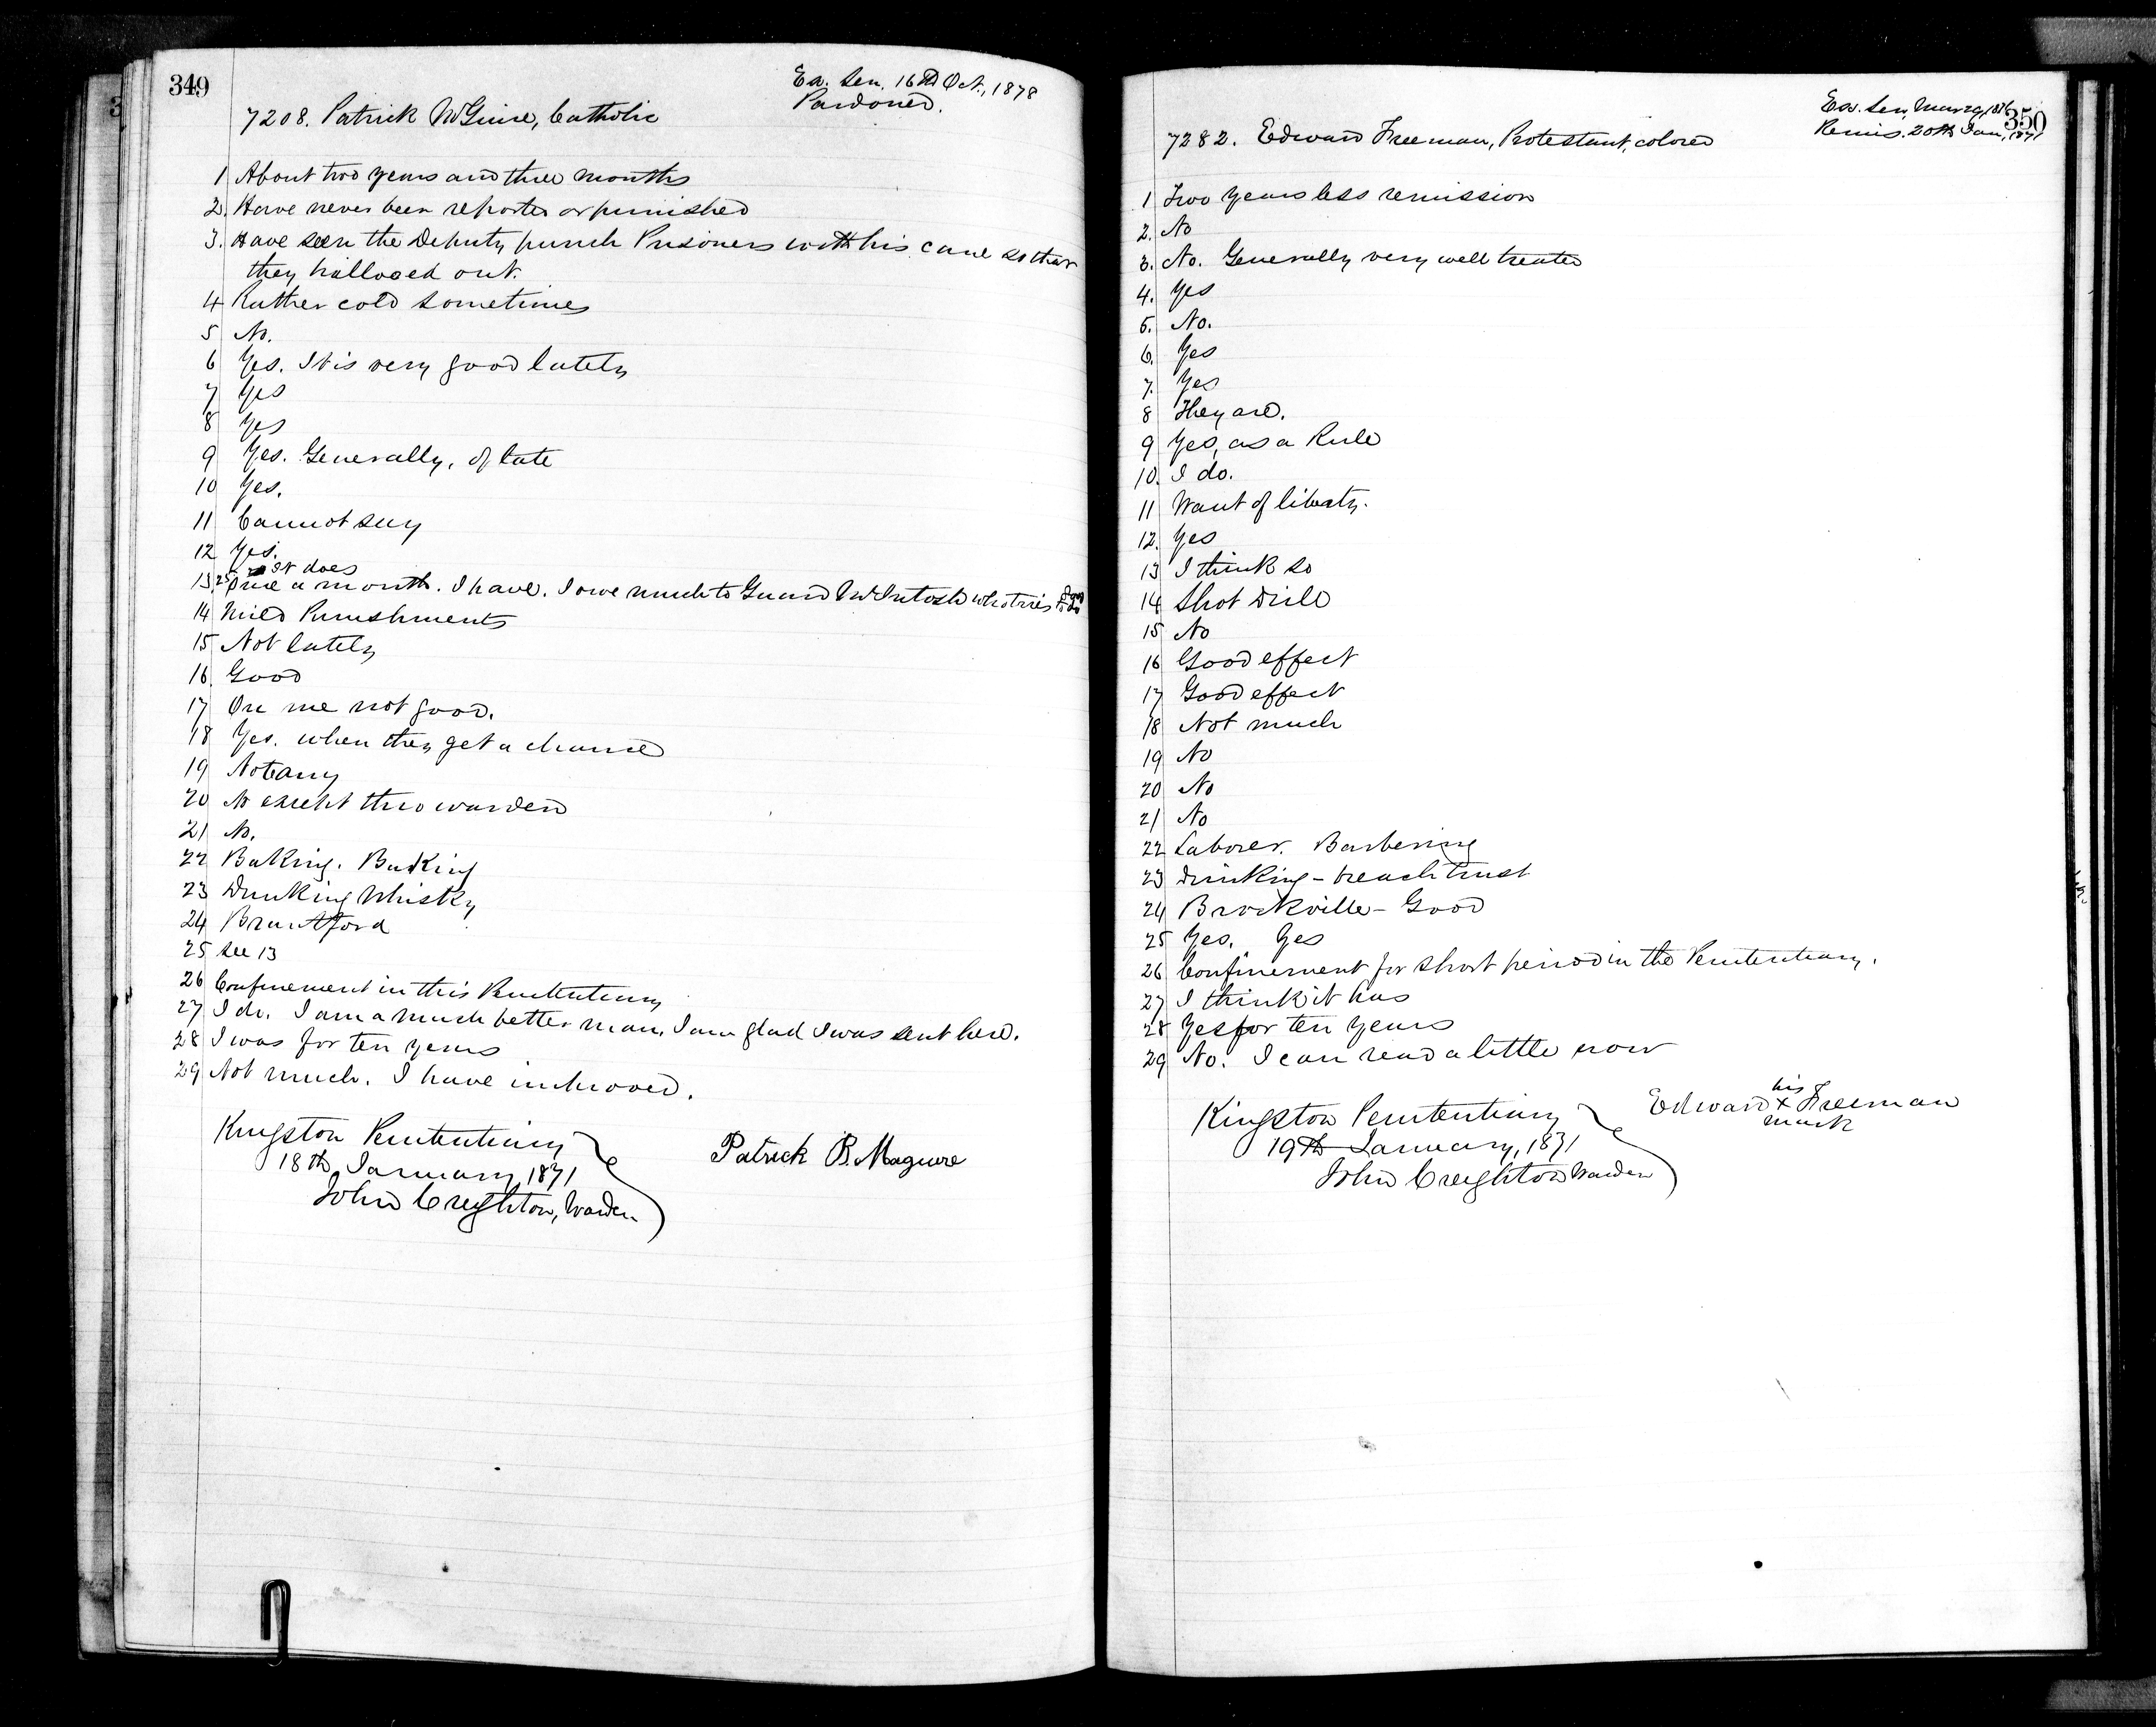 349
Ex. Sen. 16th Oct., 1878
Pardoned.
7208. Patrick McGuire, Catholic
1 About two years and three months
2. Have never been reported or punished
3. Have seen the Deputy punch Prisoners with his cane so that
they hallooed out.
4 Rather cold sometimes
5 No.
6 Yes. It is very good lately
7 Yes
8 Yes
9 Yes. Generally, of late
10 Yes.
11 Cannot say
12 Yes.
It does
13. 25 Once a month. I have. I owe much to Guard McIntosh who tries to do
14 Mild Punishments
15 Not lately
16. Good
17 On me not good.
18 Yes. when they get a chance
19 Not any
20 No except thro warden
21 No.
22 Baking. Baking
23 Drinking Whisky
24 Brantford
25 See 13
26 Confinement in this Penitentiary
27 I do. I am a much better man. I am glad I was sent here.
28 I was for ten years
29 Not much. I have improved.
Kingston Penitentiary
18th January, 1871
John Creighton, Warden
Patrick B. Maguire
350
Ex. Sen. Mar 29, 1871
Remis. 20th Jan, 1871
7282. Edward Freeman, Protestant, colored
1 Two years less remission
2. No
3. No. Generally very well treated
4. Yes
5. No.
6. Yes
7. Yes
8 They are.
9 Yes, as a Rule
10. I do.
11 Want of liberty.
12. Yes
13 I think so
14 Shot Drill
15 No
16 Good effect
17 Good effect
18 Not much
19 No
20 No
21 No
22 Laborer. Barbering
23 Drinking - breach trust
24 Brockville - Good
25 Yes. Yes
26 Confinement for short period in the Penitentiary.
27 I think it has
28 Yes for ten years
29 No. I can read a little now
Kingston Penitentiary
19th January, 1871
John Creighton Warden
his
Edward x Freeman
mark